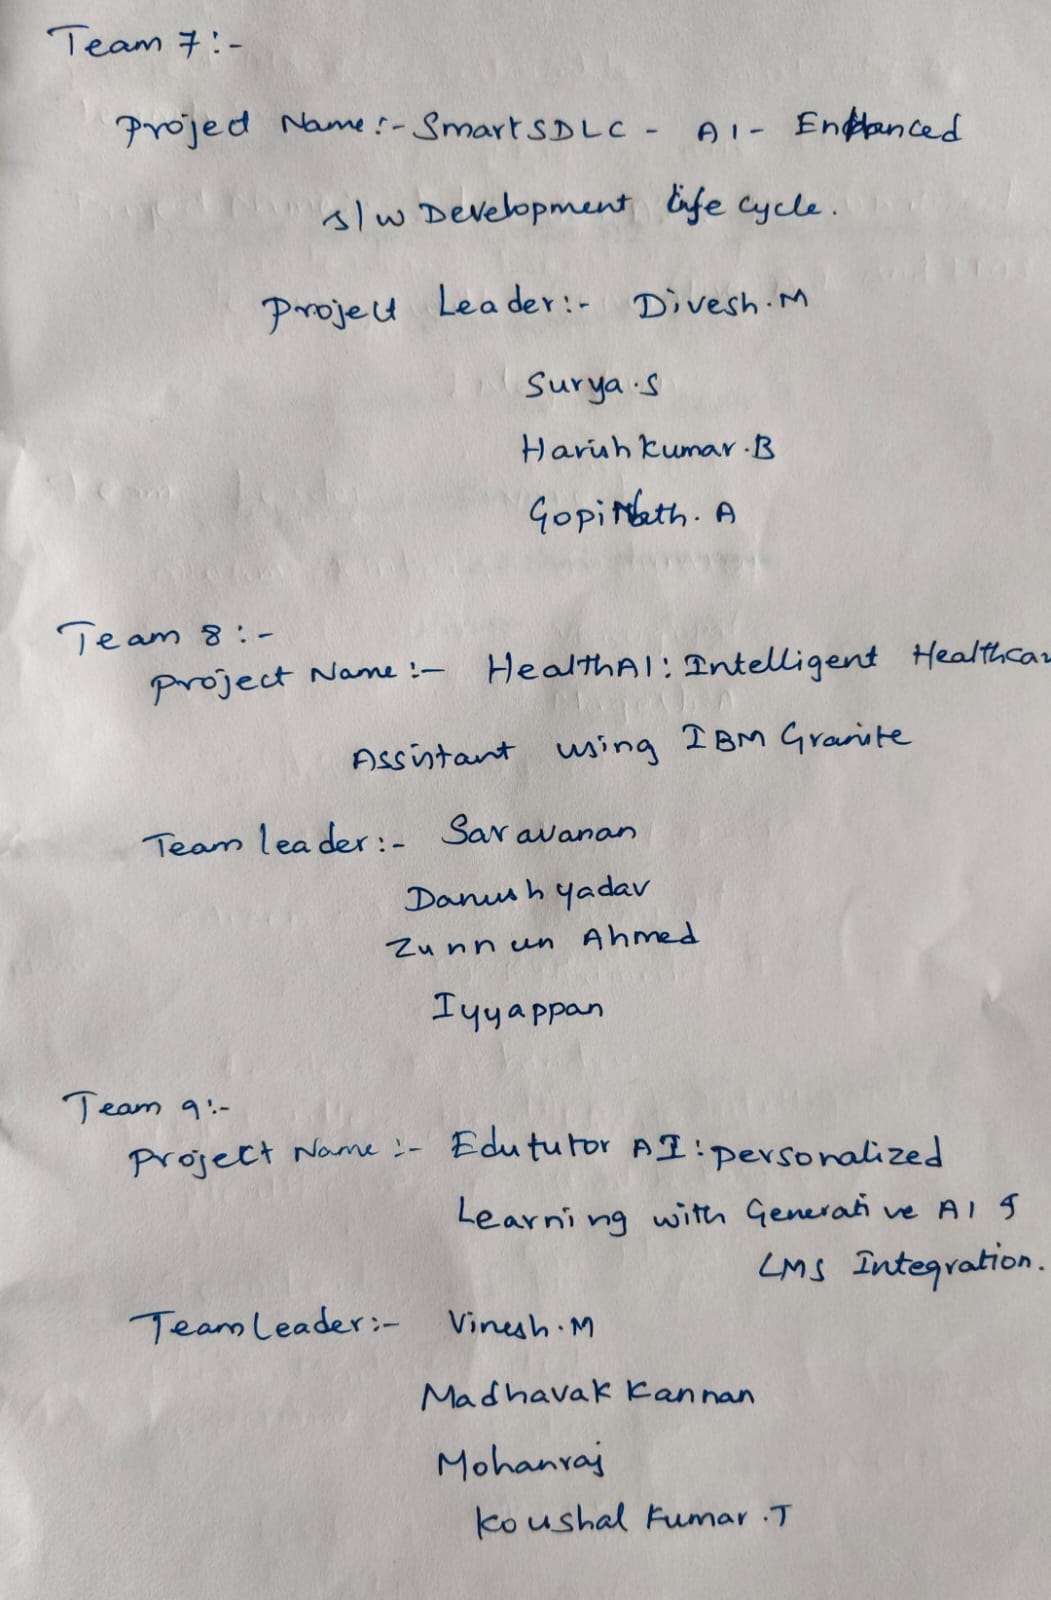 Team 7:-
Project Name:- SmartSDLC - AI - Enhanced
s/w Development Life Cycle.
Project Leader:- Divesh.M
Surya.S
Harish kumar.B
GopiNath.A
Team 8:-
Project Name:- HealthAI: Intelligent Healthcar
Assistant using IBM Granite
Team leader:- Saravanan
Danush yadav
Zunnun Ahmed
Iyyappan
Team 9:-
Project Name:- Edututor AI: personalized
Learning with Generative AI &
LMS Integration.
Team Leader:- Vinesh.M
Madhavak Kannan
Mohanraj
Koushal Kumar.T